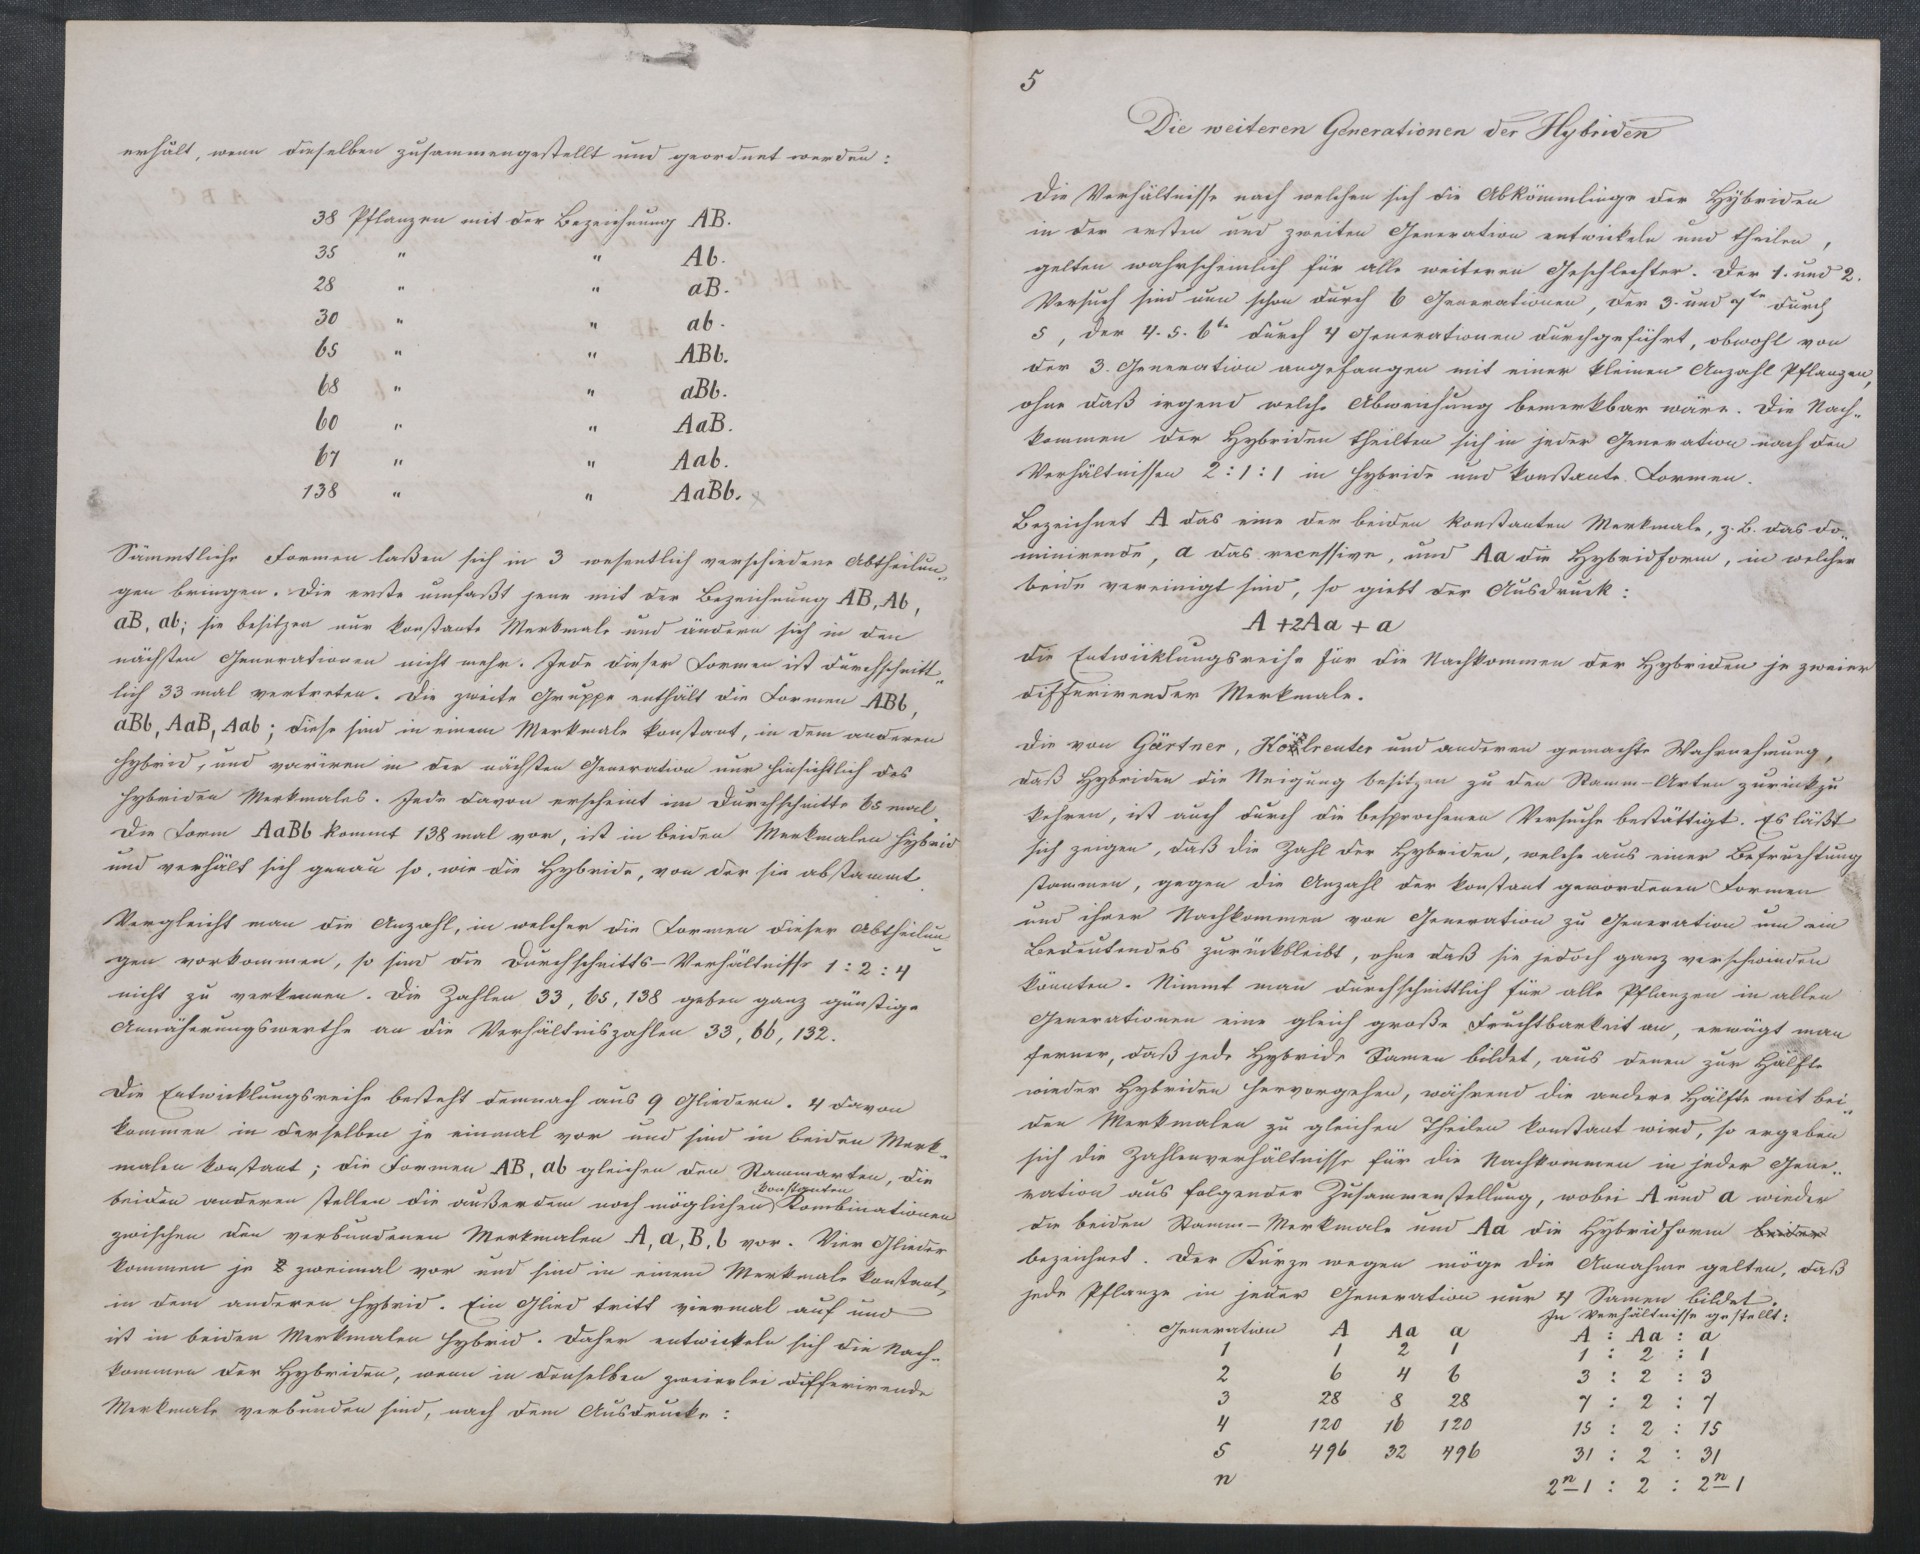 erhält, wenn dieselben zusammengestellt und geordnet werden:
38 Pflanzen mit der Bezeichnung AB.
35 " " Ab.
28 " " aB.
30 " " ab.
65 " " ABb.
68 " " aBb.
60 " " AaB.
67 " " Aab.
138 " " AaBb.
Sämmtliche Formen laßen sich in 3 wesentlich verschiedene Abtheilun„
gen bringen. Die erste umfaßt jene mit der Bezeichnung AB, Ab,
aB, ab; sie besitzen nur konstante Merkmale und ändern sich in den
nächsten Generationen nicht mehr. Jede dieser Formen ist durchschnitt„
lich 33 mal vertreten. Die zweite Gruppe enthält die Formen ABb,
aBb, AaB, Aab; diese sind in einem Merkmale konstant, in dem anderen
hybrid, und variren in der nächsten Generation nur hinsichtlich des
hybriden Merkmales. Jede davon erscheint im Durchschnitte 65 mal.
Die Form AaBb kommt 138 mal vor, ist in beiden Merkmalen hybrid
und verhält sich genau so, wie die Hybride, von der sie abstammt.
Vergleicht man die Anzahl, in welcher die Formen dieser Abtheilun„
gen vorkommen, so sind die Durchschnitts-Verhältnisse 1 : 2 : 4
nicht zu verkennen. Die Zahlen 33, 65, 138 geben ganz günstige
Annäherungswerthe an die Verhältniszahlen 33, 66, 132.
Die Entwicklungsreihe besteht demnach aus 9 Gliedern. 4 davon
kommen in derselben je einmal vor und sind in beiden Merk„
malen konstant; die Formen AB, ab gleichen den Stammarten, die
konstanten
beiden anderen stellen die außerdem noch möglichen Kombinationen
zwischen den verbundenen Merkmalen A, a, B, b vor. Vier Glieder
kommen je 2 zweimal vor und sind in einem Merkmale konstant,
in dem anderen hybrid. Ein Glied tritt viermal auf und
ist in beiden Merkmalen hybrid. Daher entwickeln sich die Nach„
kommen der Hybriden, wenn in denselben zweierlei differirende
Merkmale verbunden sind, nach dem Ausdrucke:
5
Die weiteren Generationen der Hybriden
Die Verhältnisse nach welchen sich die Abkömmlinge der Hybriden
in der ersten und zweiten Generation entwickeln und theilen,
gelten wahrscheinlich für alle weiteren Geschlechter. Der 1. und 2.
Versuch sind nun schon durch 6 Generationen, der 3. und 7te durch
5, der 4. 5. 6te durch 4 Generationen durchgeführt, obwohl von
der 3. Generation angefangen mit einer kleinen Anzahl Pflanzen,
ohne daß irgend welche Abweichung bemerkbar wäre. Die Nach„
kommen der Hybriden theilten sich in jeder Generation nach den
Verhältnissen 2 : 1 : 1 in hybride und konstante Formen.
Bezeichnet A das eine der beiden konstanten Merkmale, z. B. das do„
minirende, a das recessive, und Aa die Hybridform, in welcher
beide vereinigt sind, so giebt der Ausdruck:
A + 2Aa + a
die Entwicklungsreihe für die Nachkommen der Hybriden je zweier
differirender Merkmale.
Die von Gärtner, Kölreuter und anderen gemachte Wahrnehmung,
daß Hybriden die Neigung besitzen zu den Stamm-Arten zurückzu
kehren, ist auch durch die besprochenen Versuche bestättigt. Es läßt
sich zeigen, daß die Zahl der Hybriden, welche aus einer Befruchtung
stammen, gegen die Anzahl der konstant gewordenen Formen
und ihrer Nachkommen von Generation zu Generation um ein
Bedeutendes zurückbleibt, ohne daß sie jedoch ganz verschwinden
könnten. Nimmt man durchschnittlich für alle Pflanzen in allen
Generationen eine gleich große Fruchtbarkeit an, erwägt man
ferner, daß jede Hybride Samen bildet, aus denen zur Hälfte
wieder Hybriden hervorgehen, während die andere Hälfte mit bei„
den Merkmalen zu gleichen Theilen konstant wird, so ergeben
sich die Zahlenverhältnisse für die Nachkommen in jeder Gene„
ration aus folgender Zusammenstellung, wobei A und a wieder
die beiden Stamm-Merkmale und Aa die Hybridform beider
bezeichnet. Der Kürze wegen möge die Annahme gelten, daß
jede Pflanze in jeder Generation nur 4 Samen bildet.
In Verhältnisse gestellt:
Generation A Aa a A : Aa : a
1 1 2 1 1 : 2 : 1
2 6 4 6 3 : 2 : 3
3 28 8 28 7 : 2 : 7
4 120 16 120 15 : 2 : 15
5 496 32 496 31 : 2 : 31
n 2ⁿ–1 : 2 : 2ⁿ–1